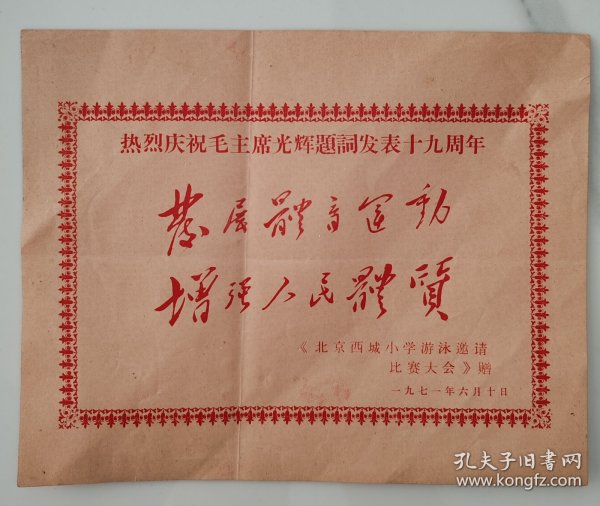 热烈庆祝毛主席光辉题詞发表十九周年
發展體育運動
增强人民體質
《北京西城小学游泳邀请
比赛大会》赠
一九七一年六月十日
孔夫子旧书网
www.kongfz.com